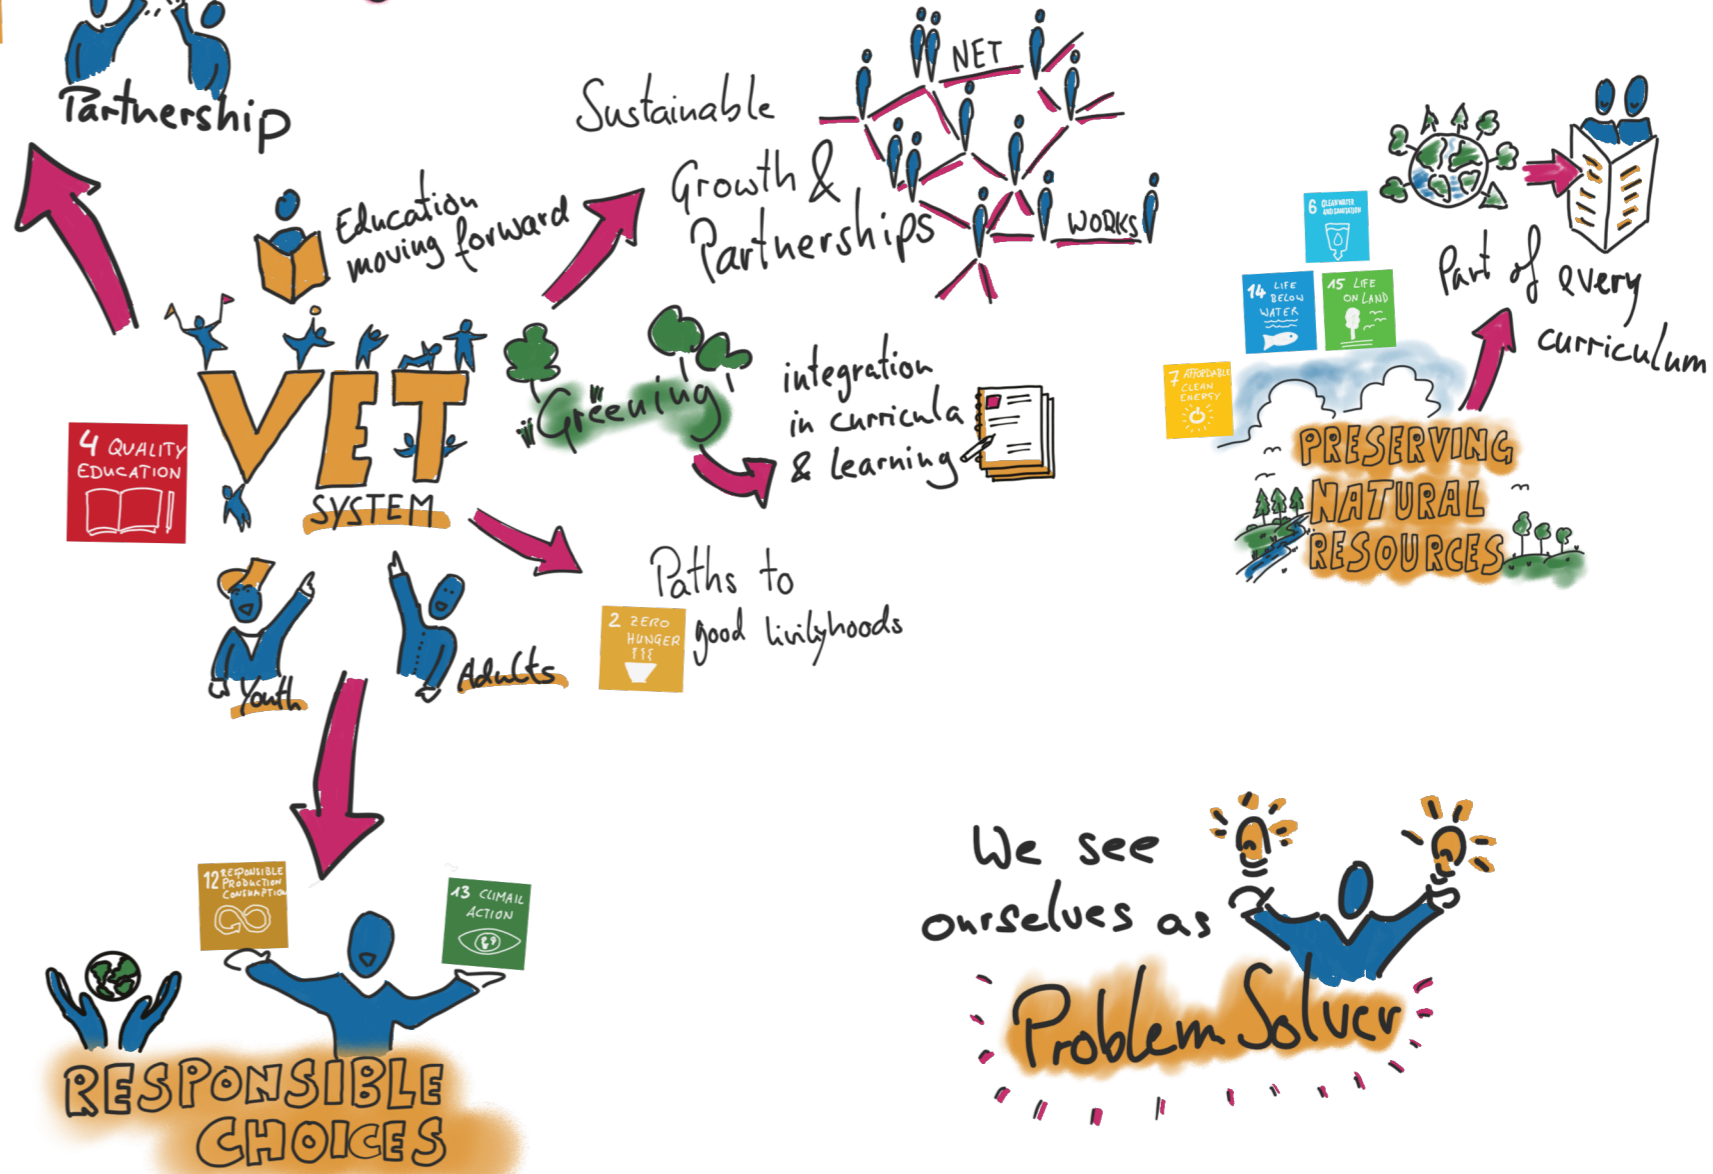 Partnership
Education
moving forward
Sustainable
Growth &
Partnerships
NET
WORKS
VET
SYSTEM
4 QUALITY
EDUCATION
Greening
integration
in curricula
& learning
Paths to
good livilyhoods
2 ZERO
HUNGER
Youth
Adults
12 RESPONSIBLE
PRODUCTION
CONSUMPTION
13 CLIMAIL
ACTION
RESPONSIBLE
CHOICES
6 CLEAN WATER
AND SANITATION
14 LIFE
BELOW
WATER
15 LIFE
ON LAND
7 AFFORDABLE
CLEAN
ENERGY
Part of every
curriculum
PRESERVING
NATURAL
RESOURCES
We see
ourselves as
Problem Solver